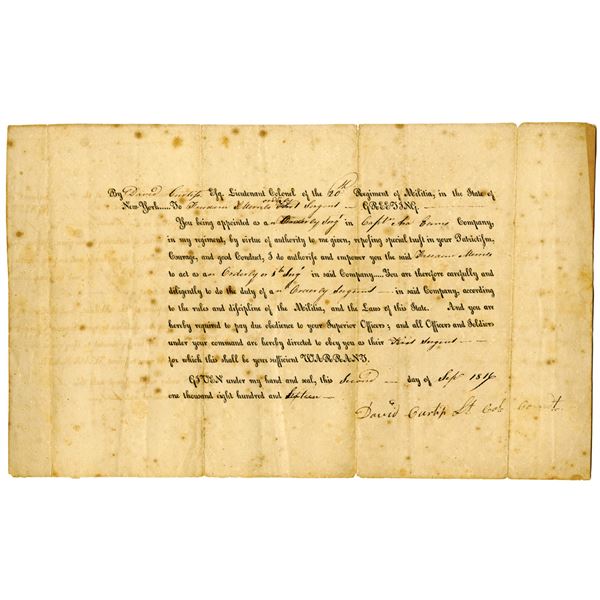 By David Curtis Esq. Lieutenant Colonel of the 20th Regiment of Militia, in the State of
New-York..... To Sergeant GREETING.
You being appointed as an Orderly Sergt in Capt Asa Company,
in my regiment, by virtue of authority to me given, reposing special trust in your Patriotism,
Courage, and good Conduct, I do authorise and empower you the said
to act as an Orderly or 1st Sergt in said Company....You are therefore carefully and
diligently to do the duty of an Orderly Sergent in said Company, according
to the rules and discipline of the Militia, and the Laws of this State. And you are
hereby required to pay due obedience to your Superior Officers; and all Officers and Soldiers
under your command are hereby directed to obey you as their First Sergent
for which this shall be your sufficient WARRANT.
GIVEN under my hand and seal, this Second day of Sept 1816
one thousand eight hundred and sixteen
David Curtis Lt Col Comdt